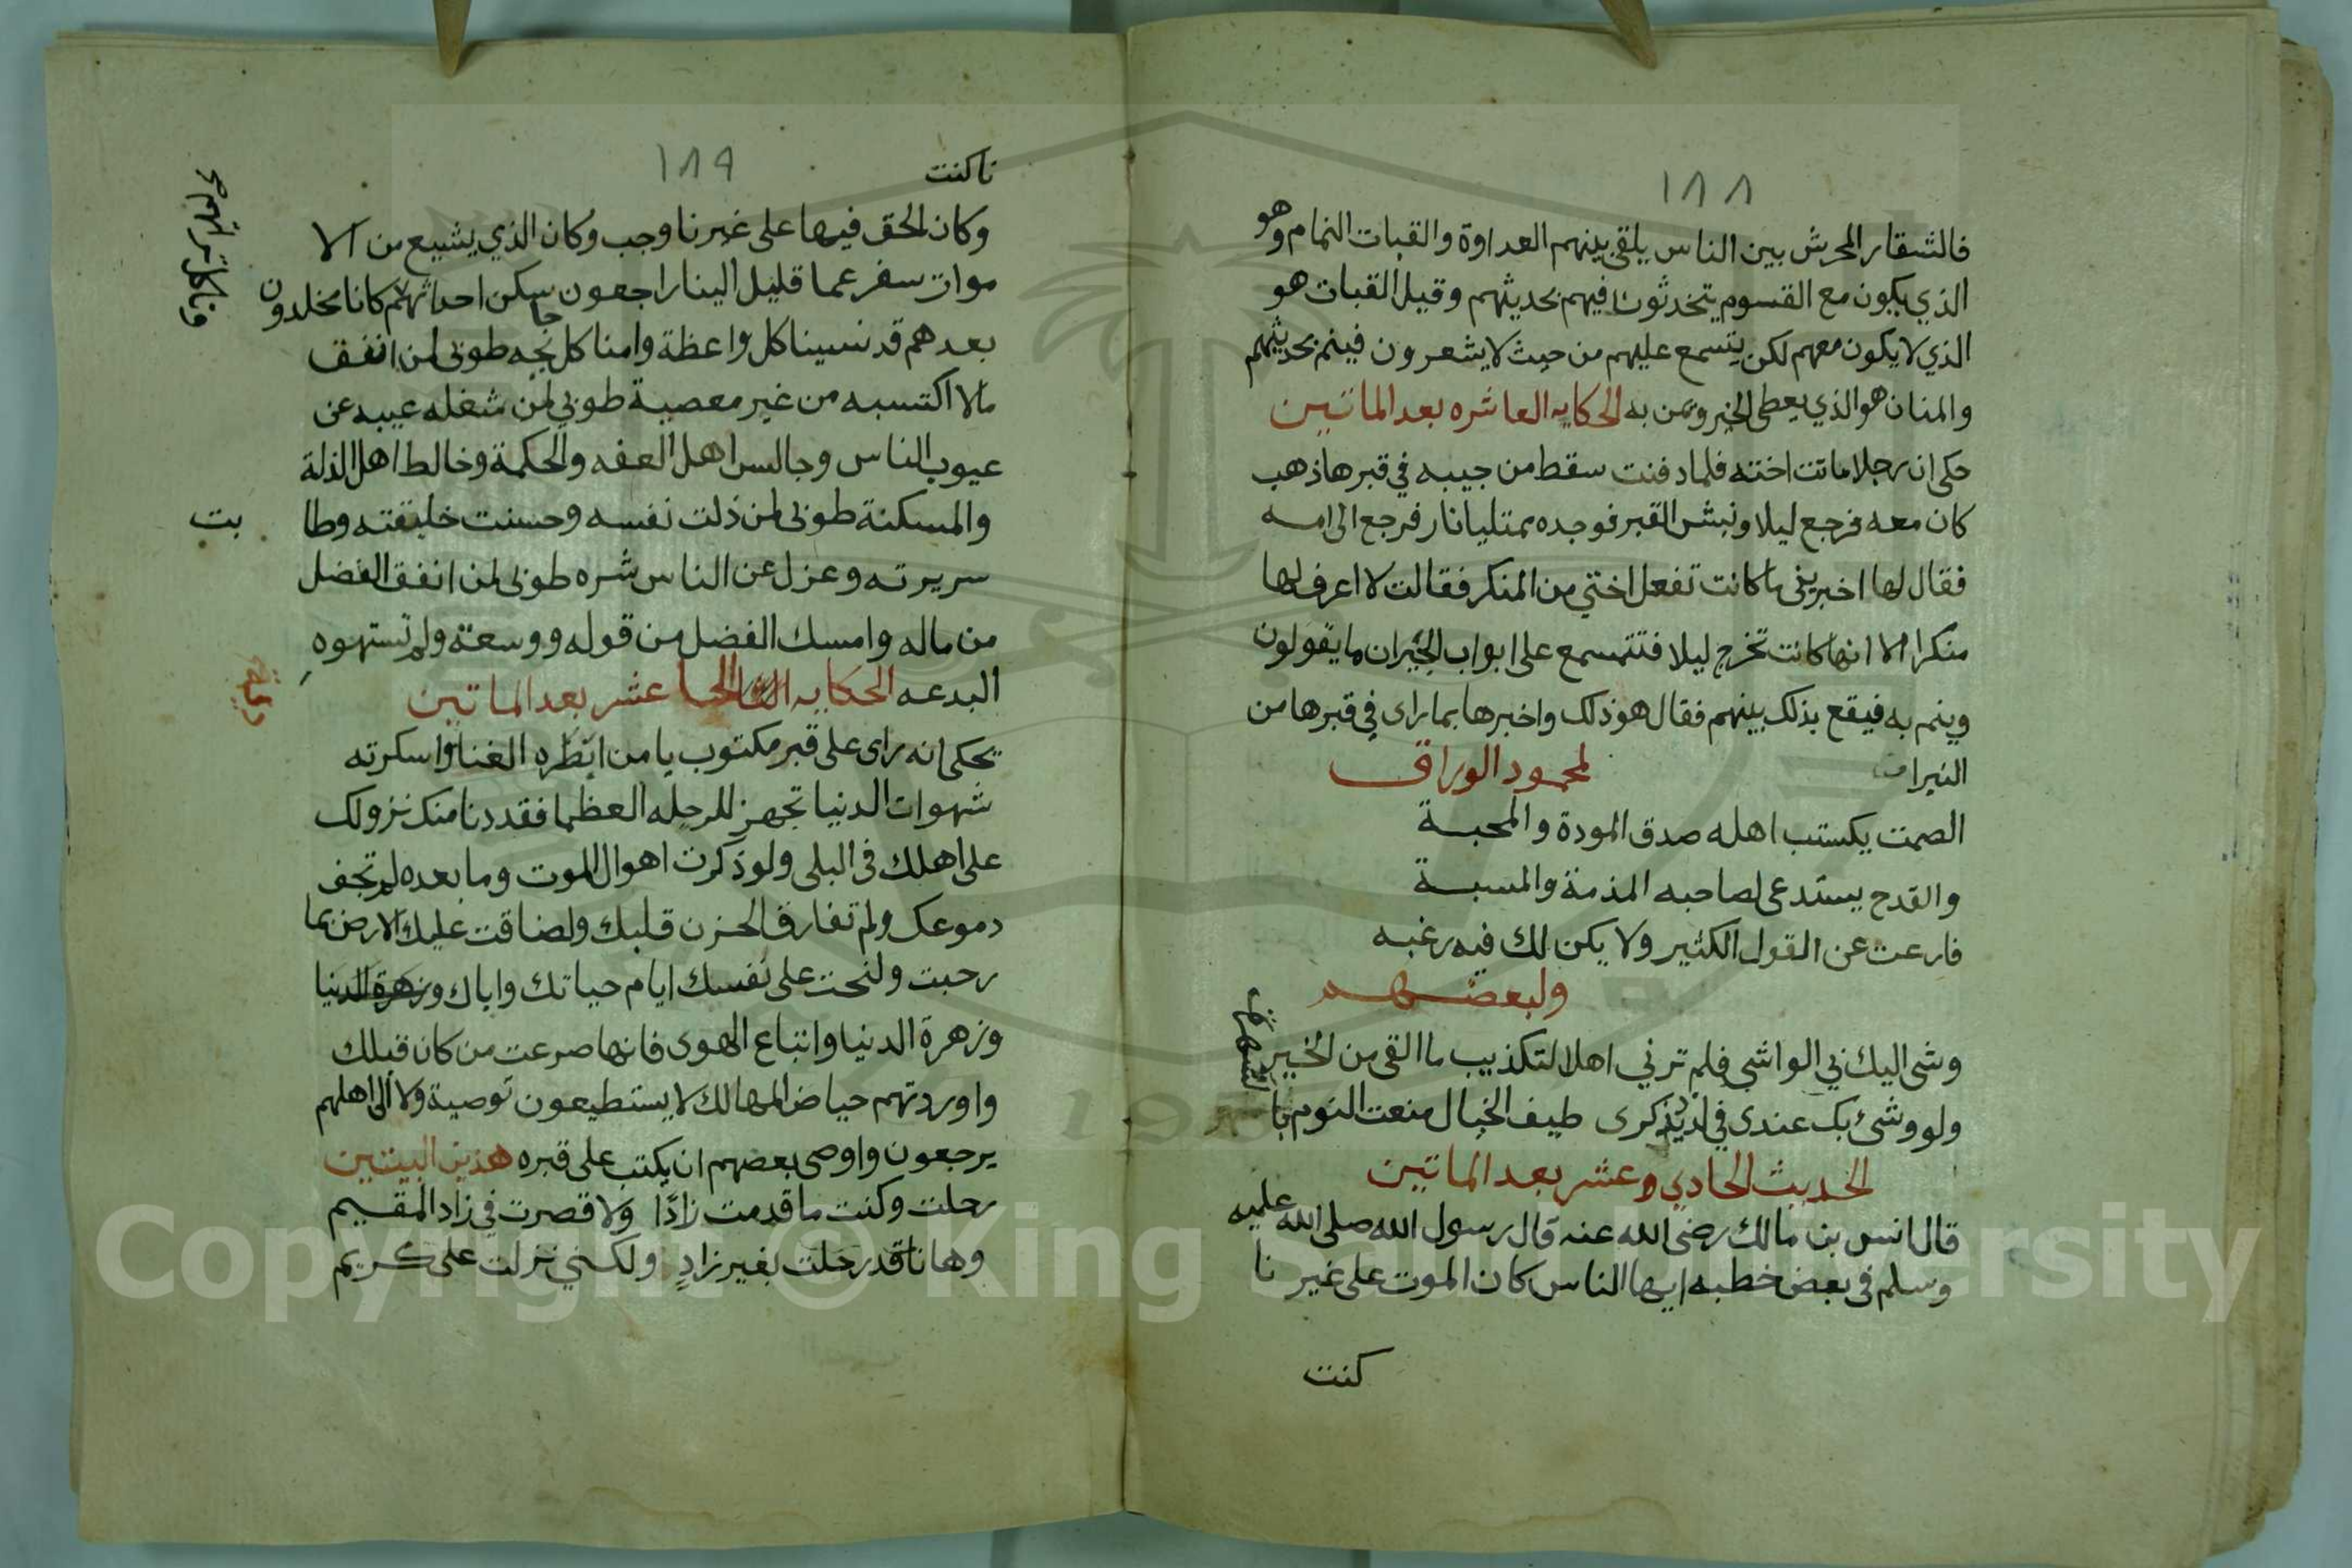 ١٨٨
فالشقار المحرش بين الناس يلقى بينهم العداوة والقبات النمام وهو
الذي يكون مع القسوم يتحدثون فيهم بحديثهم وقيل القبات هو
الذي لا يكون معهم لكن يتسمع عليهم من حيث لا يشعرون فينم بحديثهم
والمنان هو الذي يعطى الخير ويمن به الحكايه العاشره بعد الماتين
حكى ان رجلا ماتت اخته فلما دفنت سقط من جيبه في قبرها ذهب
كان معه فرجع ليلا ونبش القبر فوجده ممتليا نار فرجع الى امه
فقال لها اخبريني ما كانت تفعل اختي من المنكر فقالت لا اعرف لها
منكرا الا انها كانت تخرج ليلا فتتسمع على ابواب الجيران ما يقولون
وينم به فيقع بذلك بينهم فقال هو ذلك واخبرها بما راى في قبرها من
النيران لمحمود الوراق
الصمت يكستب اهله صدق المودة والمحبة
والقدح يستدعى لصاحبه المذمة والمسبة
فارعت عن القول الكثير ولا يكن لك فيه رغبه
ولبعضهم
وشى اليك بي الواشي فلم ترني اهلا لتكذيب ما القى من الخبر
ولو وشئ بك عندى في لذيذ كرى طيف الخيال منعت النوم با
لسهر
الحديث الحادي وعشر بعد الماتين
قال انس بن مالك رضي الله عنه قال رسول الله صلى الله عليه
وسلم في بعض خطبه ايها الناس كان الموت على غير نا
كنت
١٨٩
نا كنت
وكان الحق فيها على غيرنا وجب وكان الذي يشيع من الا
موات سفر عما قليل الينا راجعون سكن احداثهم كانا مخلدون
بعدهم قد نسينا كل واعظة وامنا كل جايحه طوبى لمن انفق
مالا اكتسبه من غير معصية طوبى لمن شغله عيبه عن
عيوب الناس وجالس اهل العفه والحكمة وخالط اهل الذلة
والمسكنة طوبى لمن ذلت نفسه وحسنت خليقته وطا بت
سريرته وعزل عن الناس شره طوبى لمن انفق الفضل
من ماله وامسك الفضل من قوله ووسعته ولم تستهوه
البدعه الحكايه الحا عشر بعد الماتين
يحكى انه راى على قبر مكتوب يا من ابطره الغنا واسكرته
شهوات الدنيا تجهز للرحله العظما فقد دنا منك نزولك
على اهلك في البلى ولو ذكرت اهوال الموت وما بعده لم تجف
دموعك ولم تفارق الحزن قلبك ولضاقت عليك الارض بما
رحبت ولنحت على نفسك ايام حياتك واياك وزهرة الدنيا
وزهرة الدنيا واتباع الهوى فانها صرعت من كان قبلك
واوردتهم حياض المهالك لا يستطيعون توصية ولا الى اهلهم
يرجعون واوصى بعضهم ان يكتب على قبره هذين البيتين
رحلت وكنت ما قدمت زادًا ولا قصرت في زاد المقيم
وها نا قد رحلت بغير زادٍ ولكني نزلت على كريم
Copyright © King Saud University
195